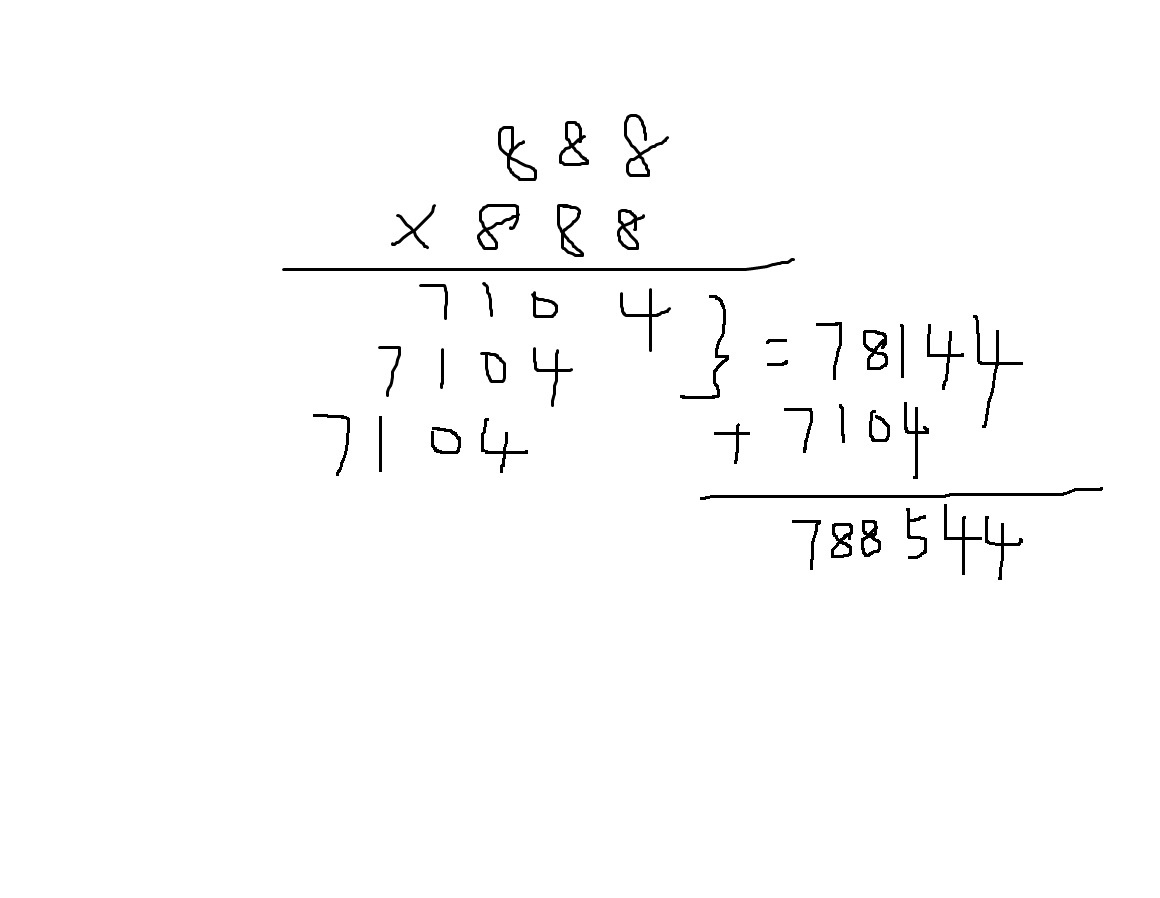 888
× 888
7104
7104 } = 78144
7104 + 7104
788544